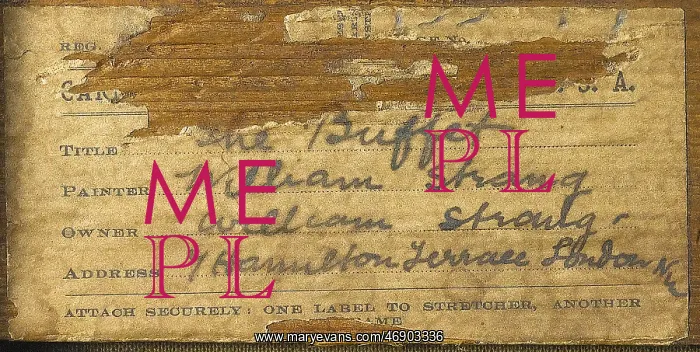 REG. No.
CAR S. A.
TITLE The Buffet
PAINTER William Strang
OWNER William Strang
ADDRESS 7 Hamilton Terrace London NW
ATTACH SECURELY: ONE LABEL TO STRETCHER, ANOTHER
AME
ME
PL
ME
PL
www.maryevans.com/46903336